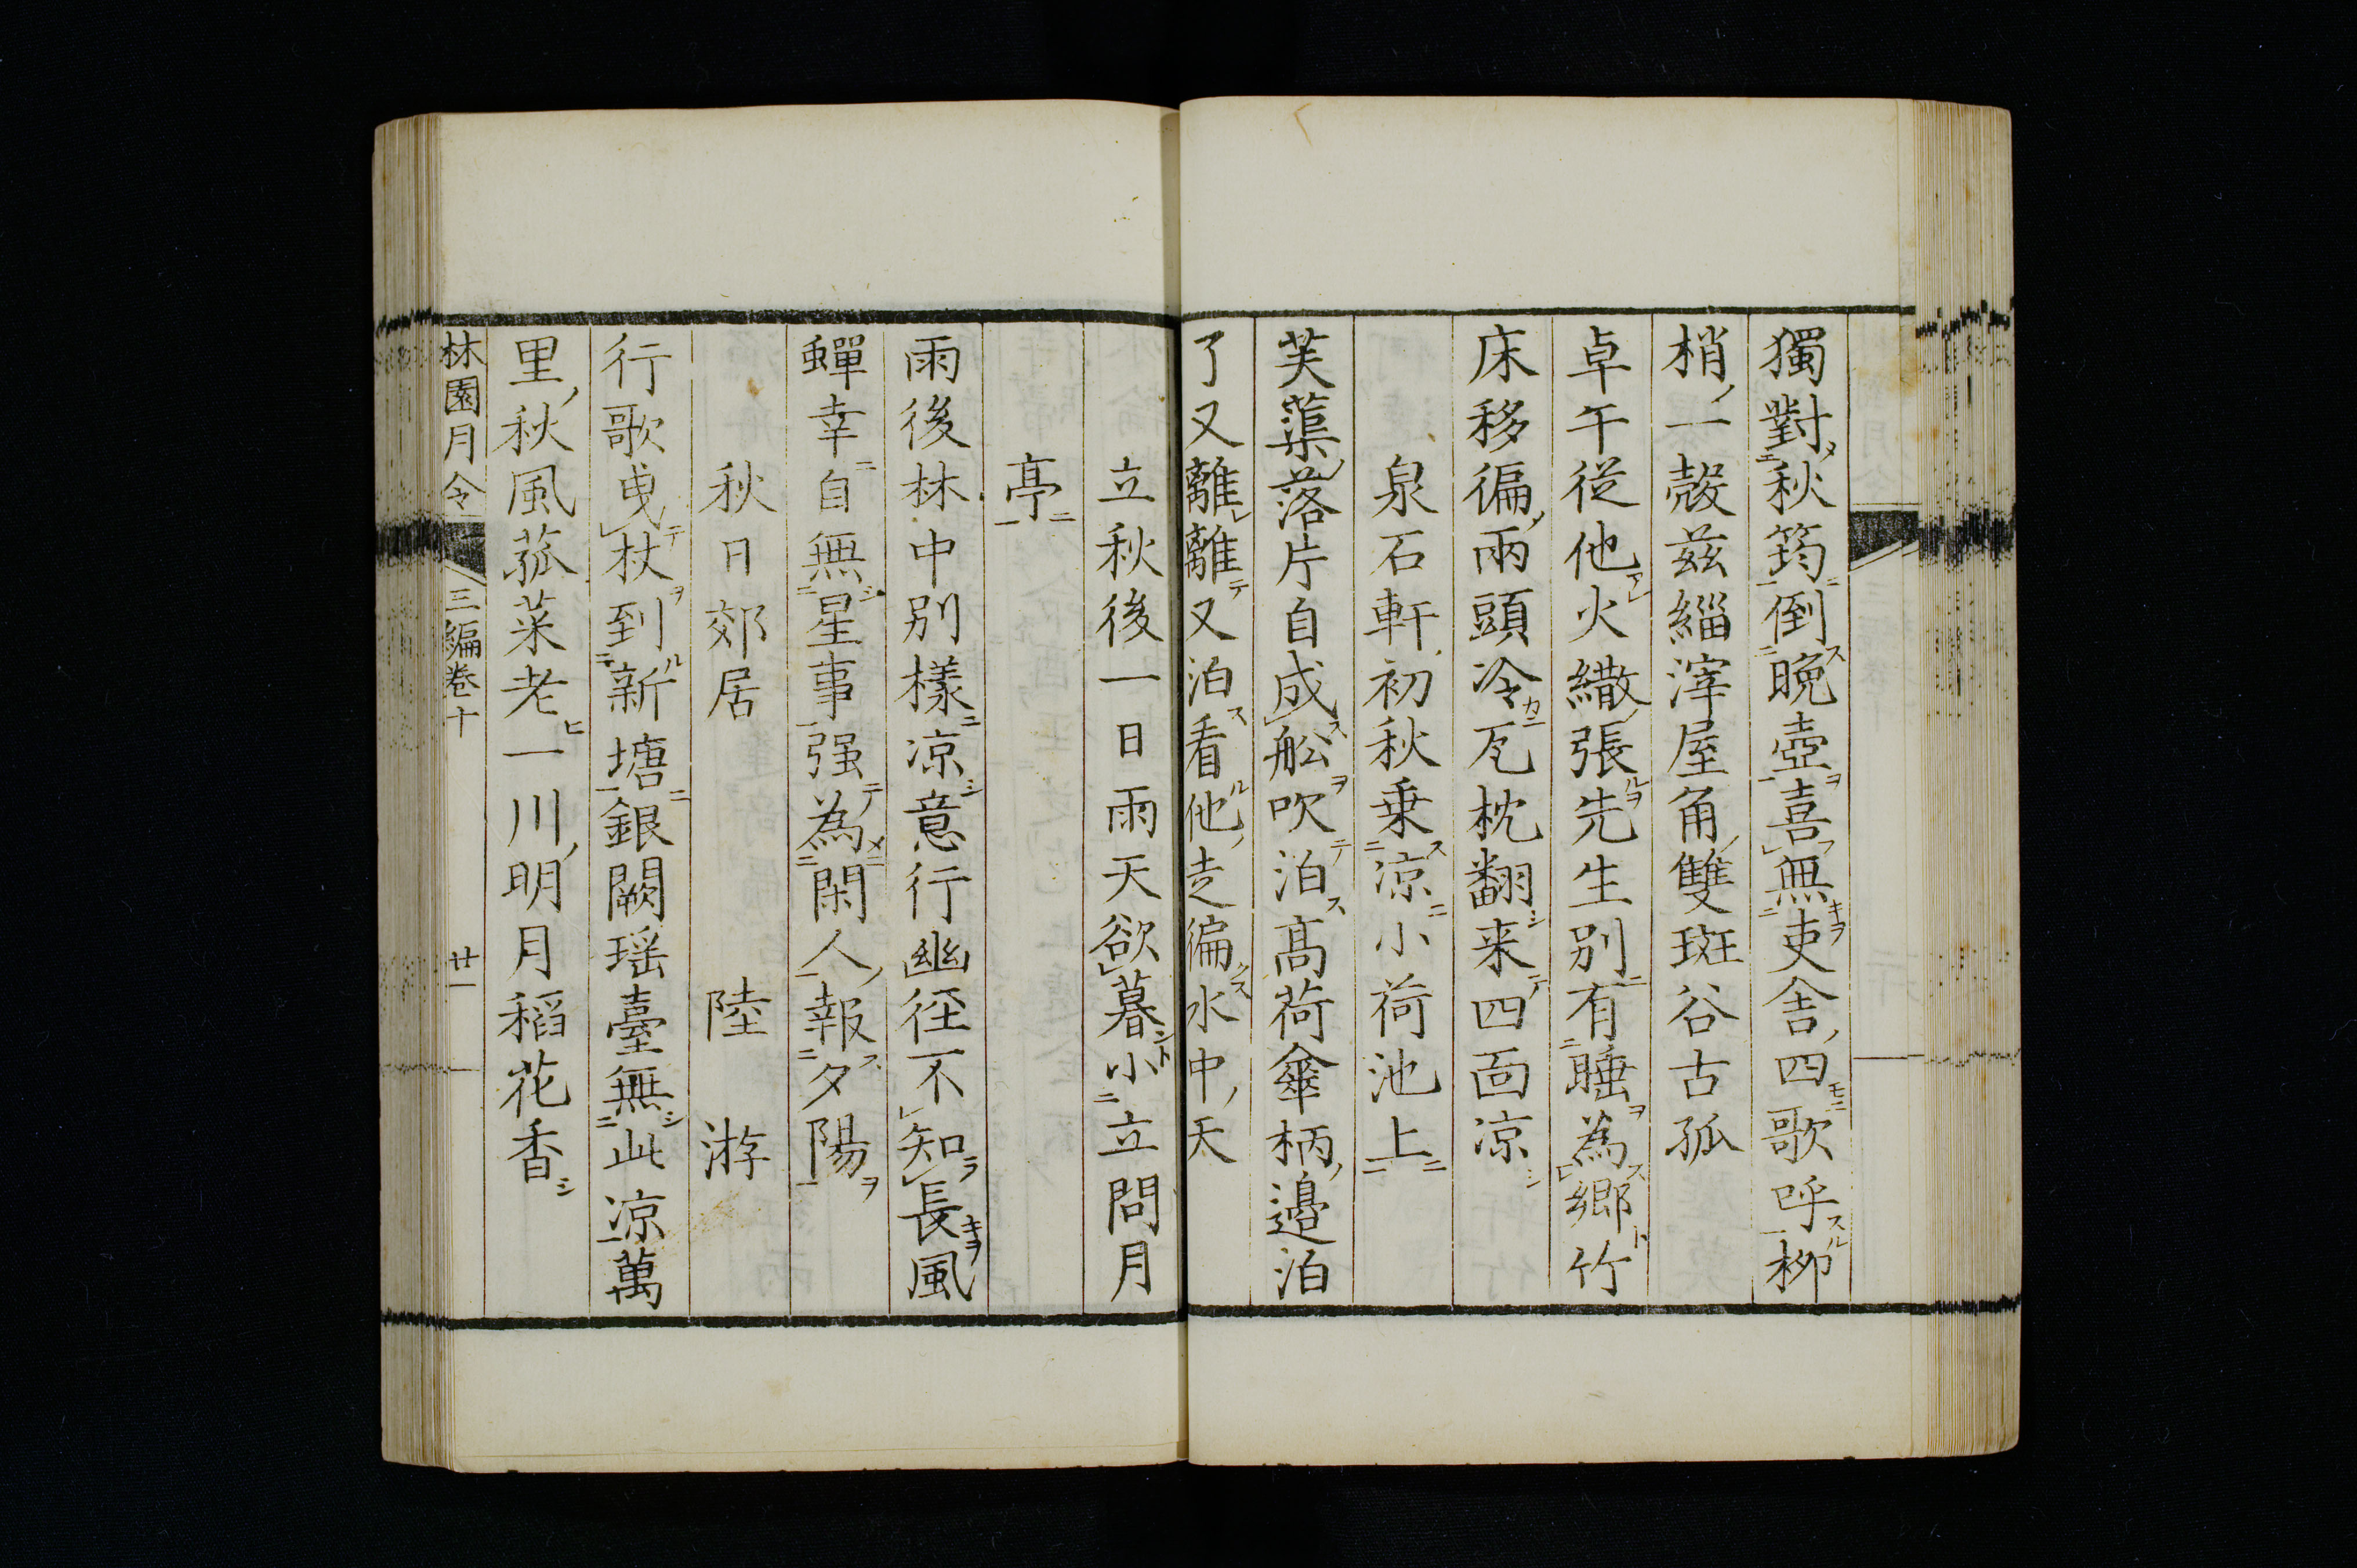 獨對秋筠倒晩壺喜無吏舎四歌呼柳
梢一殼茲緇滓屋角雙斑谷古孤
卓午從他火繖張先生別有睡為郷竹
床移徧兩頭冷瓦枕翻来四面凉
泉石軒初秋乗凉小荷池上
芙蕖落片自成舩吹泊髙荷傘柄邉泊
了又離離又泊看他走徧水中天
立秋後一日雨天欲暮小立問月
亭
雨後林中別様凉意行幽徑不知長風
蟬幸自無星事强為閑人報夕陽
秋日郊居 陸游
行歌曳杖到新塘銀闕瑶臺無此凉萬
里秋風菰菜老一川明月稻花香
林園月令 三編卷十 廿一